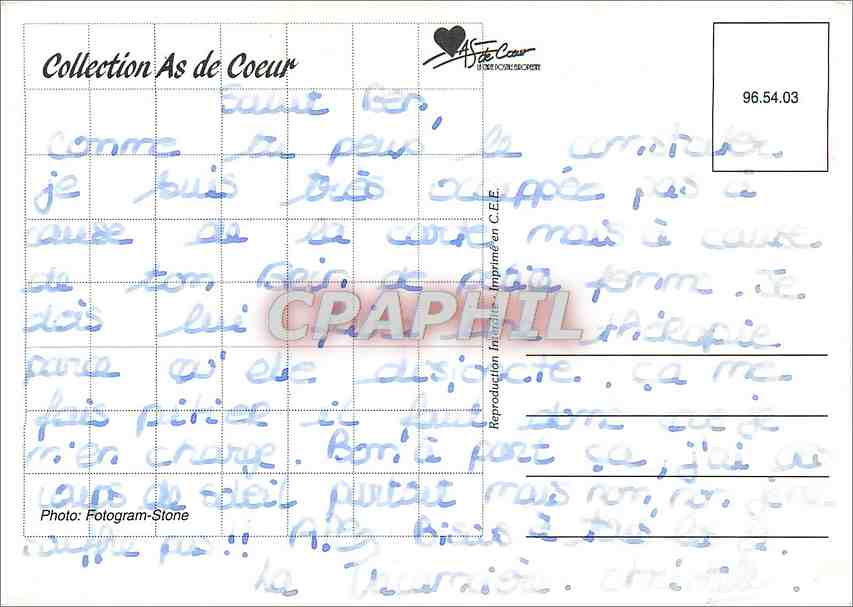 Collection As de Coeur
As de Coeur
LA CARTE POSTALE EUROPEENNE
96.54.03
Salut Ben,
Comme tu peux le constater,
je suis très occuppée pas à
cause de la carte mais à cause
de ton Ben et femme. Je
dois lui une thérapie
parce qu'elle disjoncte. ça me
fais pitiée il faut donc que je
m'en charge. Bon à part ça, j'ai
coups de soleil partout mais non, non, je
souffre pas!! Bisous à
La
CPAPHIL
Reproduction Interdite - Imprimé en C.E.E.
Photo: Fotogram-Stone